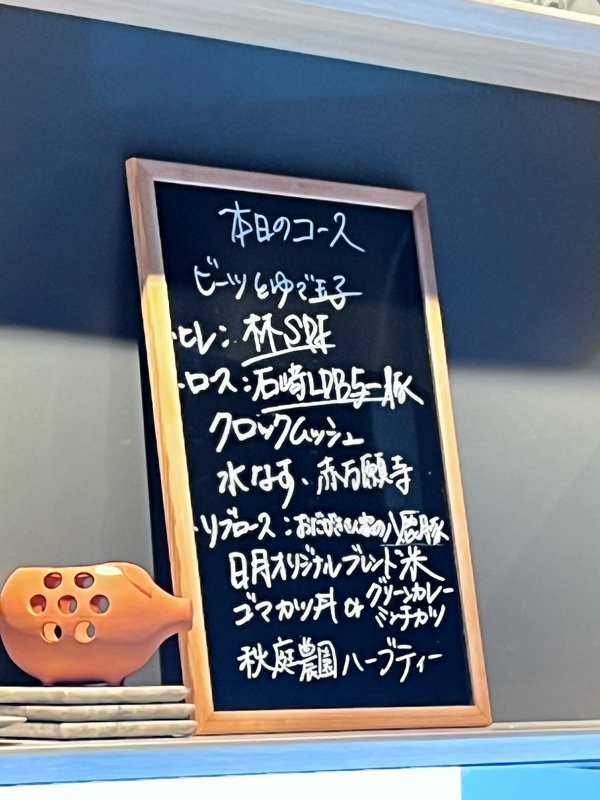 本日のコース
ビーツとゆで玉子
・ヒレ：林SPF
・ロース：石崎LDB5一豚
クロックムッシュ
水なす、赤万願寺
・リブロース：おにがきさん家の八鹿豚
日月オリジナルブレンド米
ゴマカツ丼 or グリーンカレー
ミンチカツ
秋庭農園ハーブティー